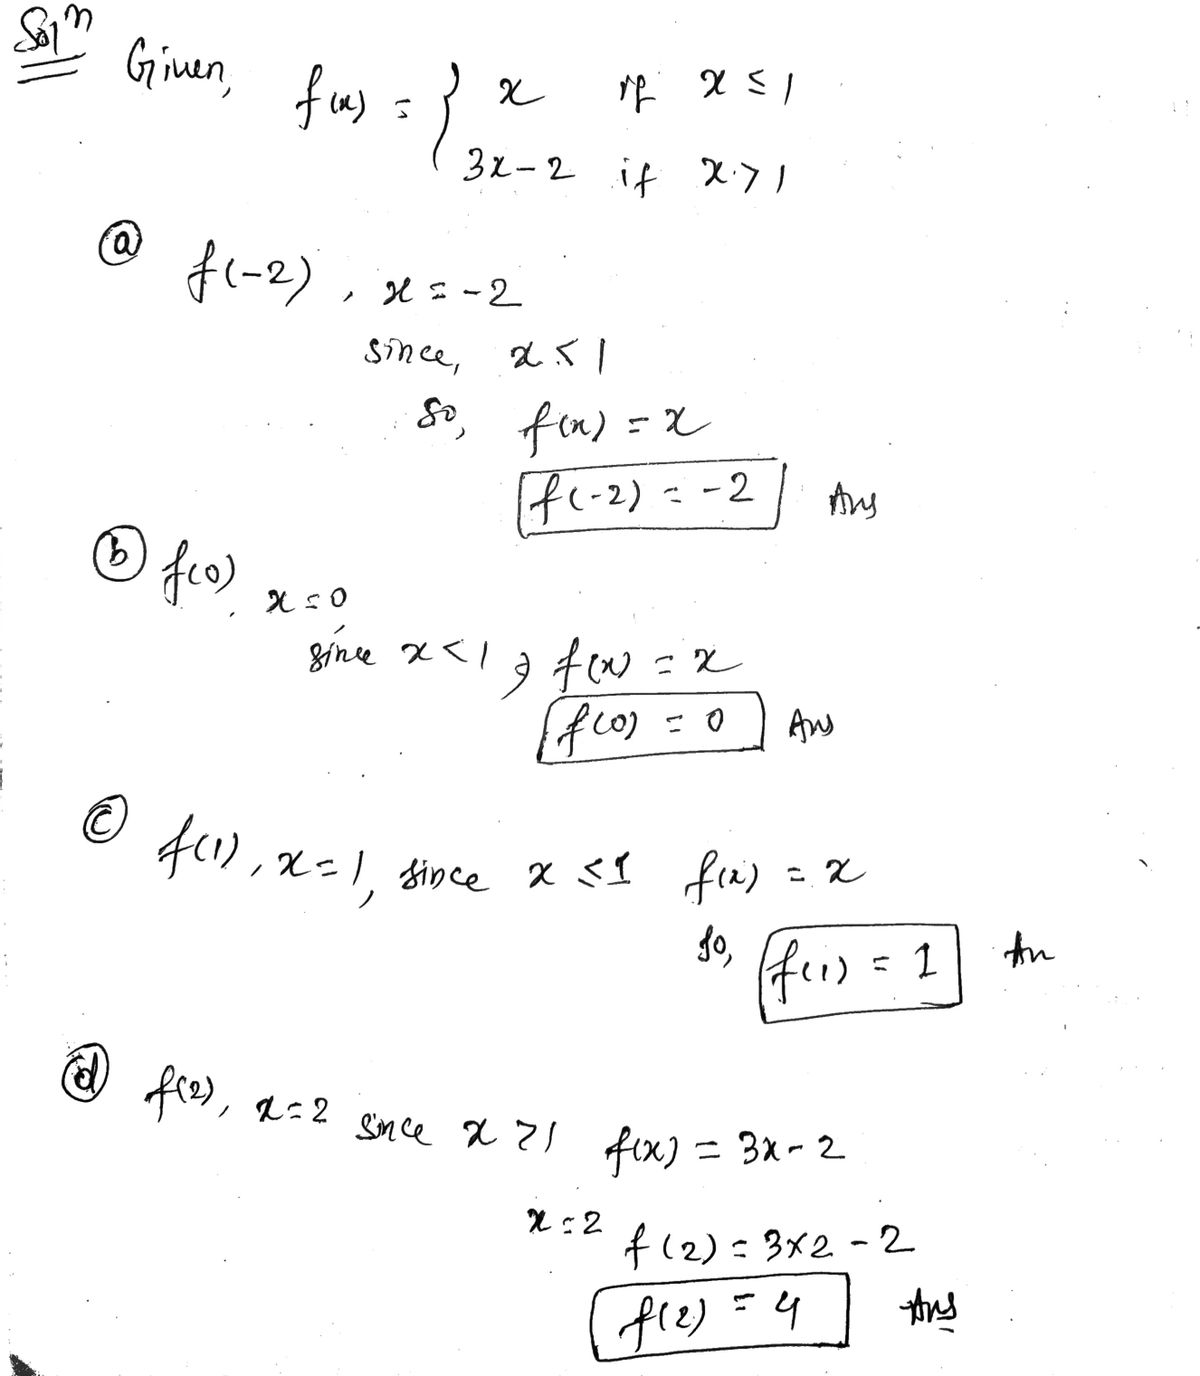 Solⁿ
Given,
f(x) = { x if x ≤ 1
3x - 2 if x > 1
(a)
f(-2), x = -2
since, x < 1
So, f(x) = x
f(-2) = -2 Ans
(b) f(0), x = 0
since x < 1, f(x) = x
f(0) = 0 Ans
(c)
f(1), x = 1, since x ≤ 1 f(x) = x
so, f(1) = 1 An
(d) f(2), x = 2 since x > 1 f(x) = 3x - 2
x = 2 f(2) = 3×2 - 2
f(2) = 4 Ans